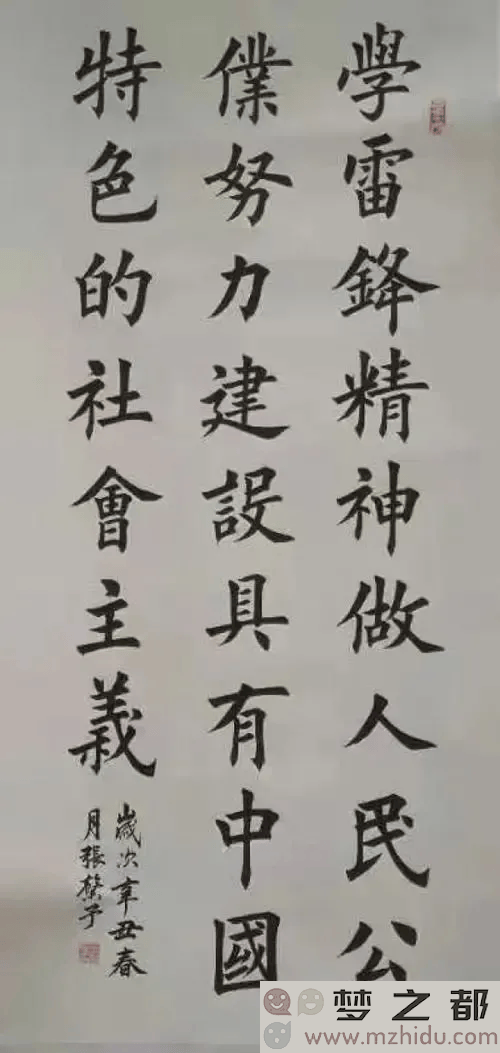 學雷鋒精神做人民公
僕努力建設具有中國
特色的社會主義
歲次辛丑春
月張發子
梦之都
www.mzhidu.com